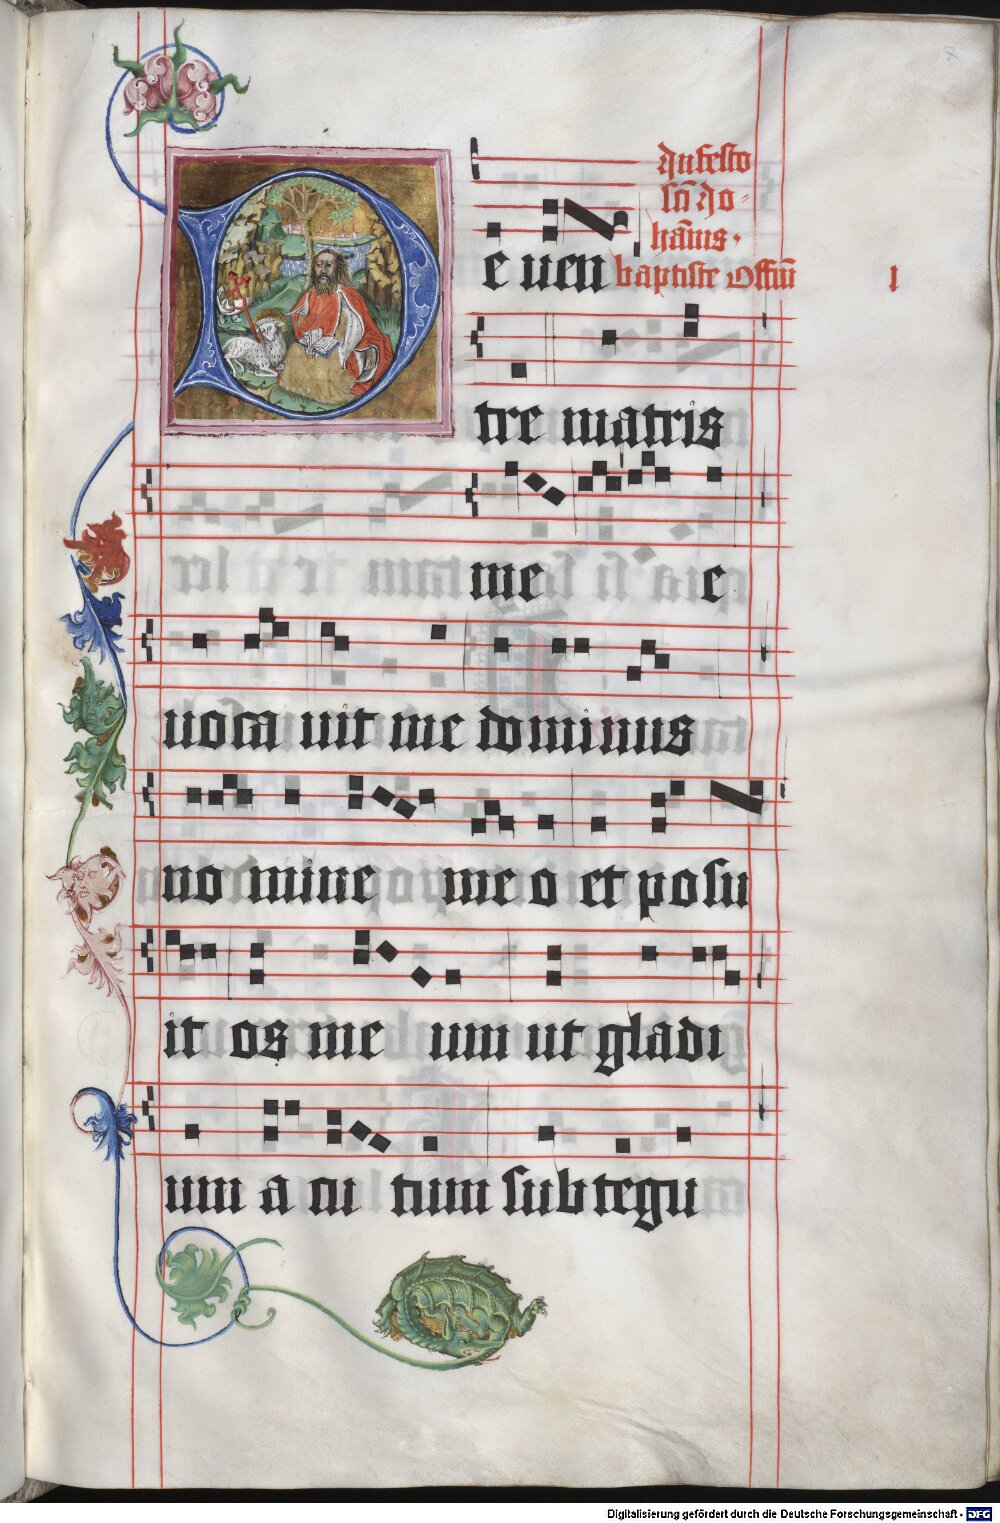 In festo
scī Jo-
hānis.
De uen baptiste Offm̄ I
tre matris
me e
uoca uit me dominus
no mine me o et posu
it os me um ut gladi
um a cu tum sub tegu
Digitalisierung gefördert durch die Deutsche Forschungsgemeinschaft - DFG